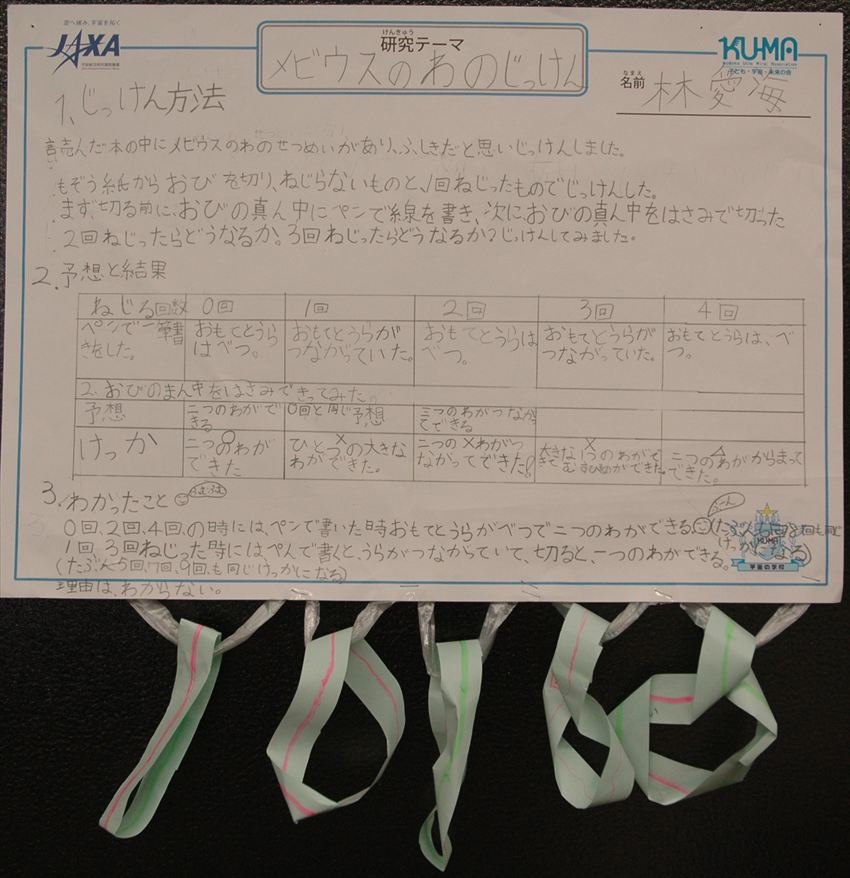 空へ挑み、宇宙を拓く
JAXA
宇宙航空研究開発機構
けんきゅう
研究テーマ
メビウスのわのじっけん
KU-MA
子ども・宇宙・未来の会
なまえ
名前 林愛海
1、じっけん方法
読んだ本の中にメビウスのわのせつめいがあり、ふしきだと思いじっけんしました。
もぞう紙からおびを切り、ねじらないものと、1回ねじったものでじっけんした。
まず、切る前に、おびの真ん中にペンで線を書き、次におびの真ん中をはさみで切った
2回ねじったらどうなるか。3回ねじったらどうなるか?じっけんしてみました。
2.予想と結果
ねじる回数 0回 1回 2回 3回 4回
ペンで一筆書きをした。 おもてとうらはべつ。 おもてとうらがつながっていた。 おもてとうらはべつ。 おもてとうらがつながっていた。 おもてとうらは、べつ。
2.おびのまん中をはさみできってみた。
予想 二つのわができる 0回と同じ予想 三つのわがつながってできる
けっか 二つのわができた ひとつの大きなわができた。 二つのわがつながってできた! 大きな1つのわができてむすびめができた。 二つのわがからまってできた。
3.わかったこと
ふむふむ
0回、2回、4回、の時には、ペンで書いた時おもてとうらがべつで二つのわができる。
1回、3回ねじった時にはぺんで書くと、うらがつながっていて、切ると、一つのわができる。
(たぶん5回、7回、9回、も同じけっかになる)
理由は、わからない。
宇宙の学校